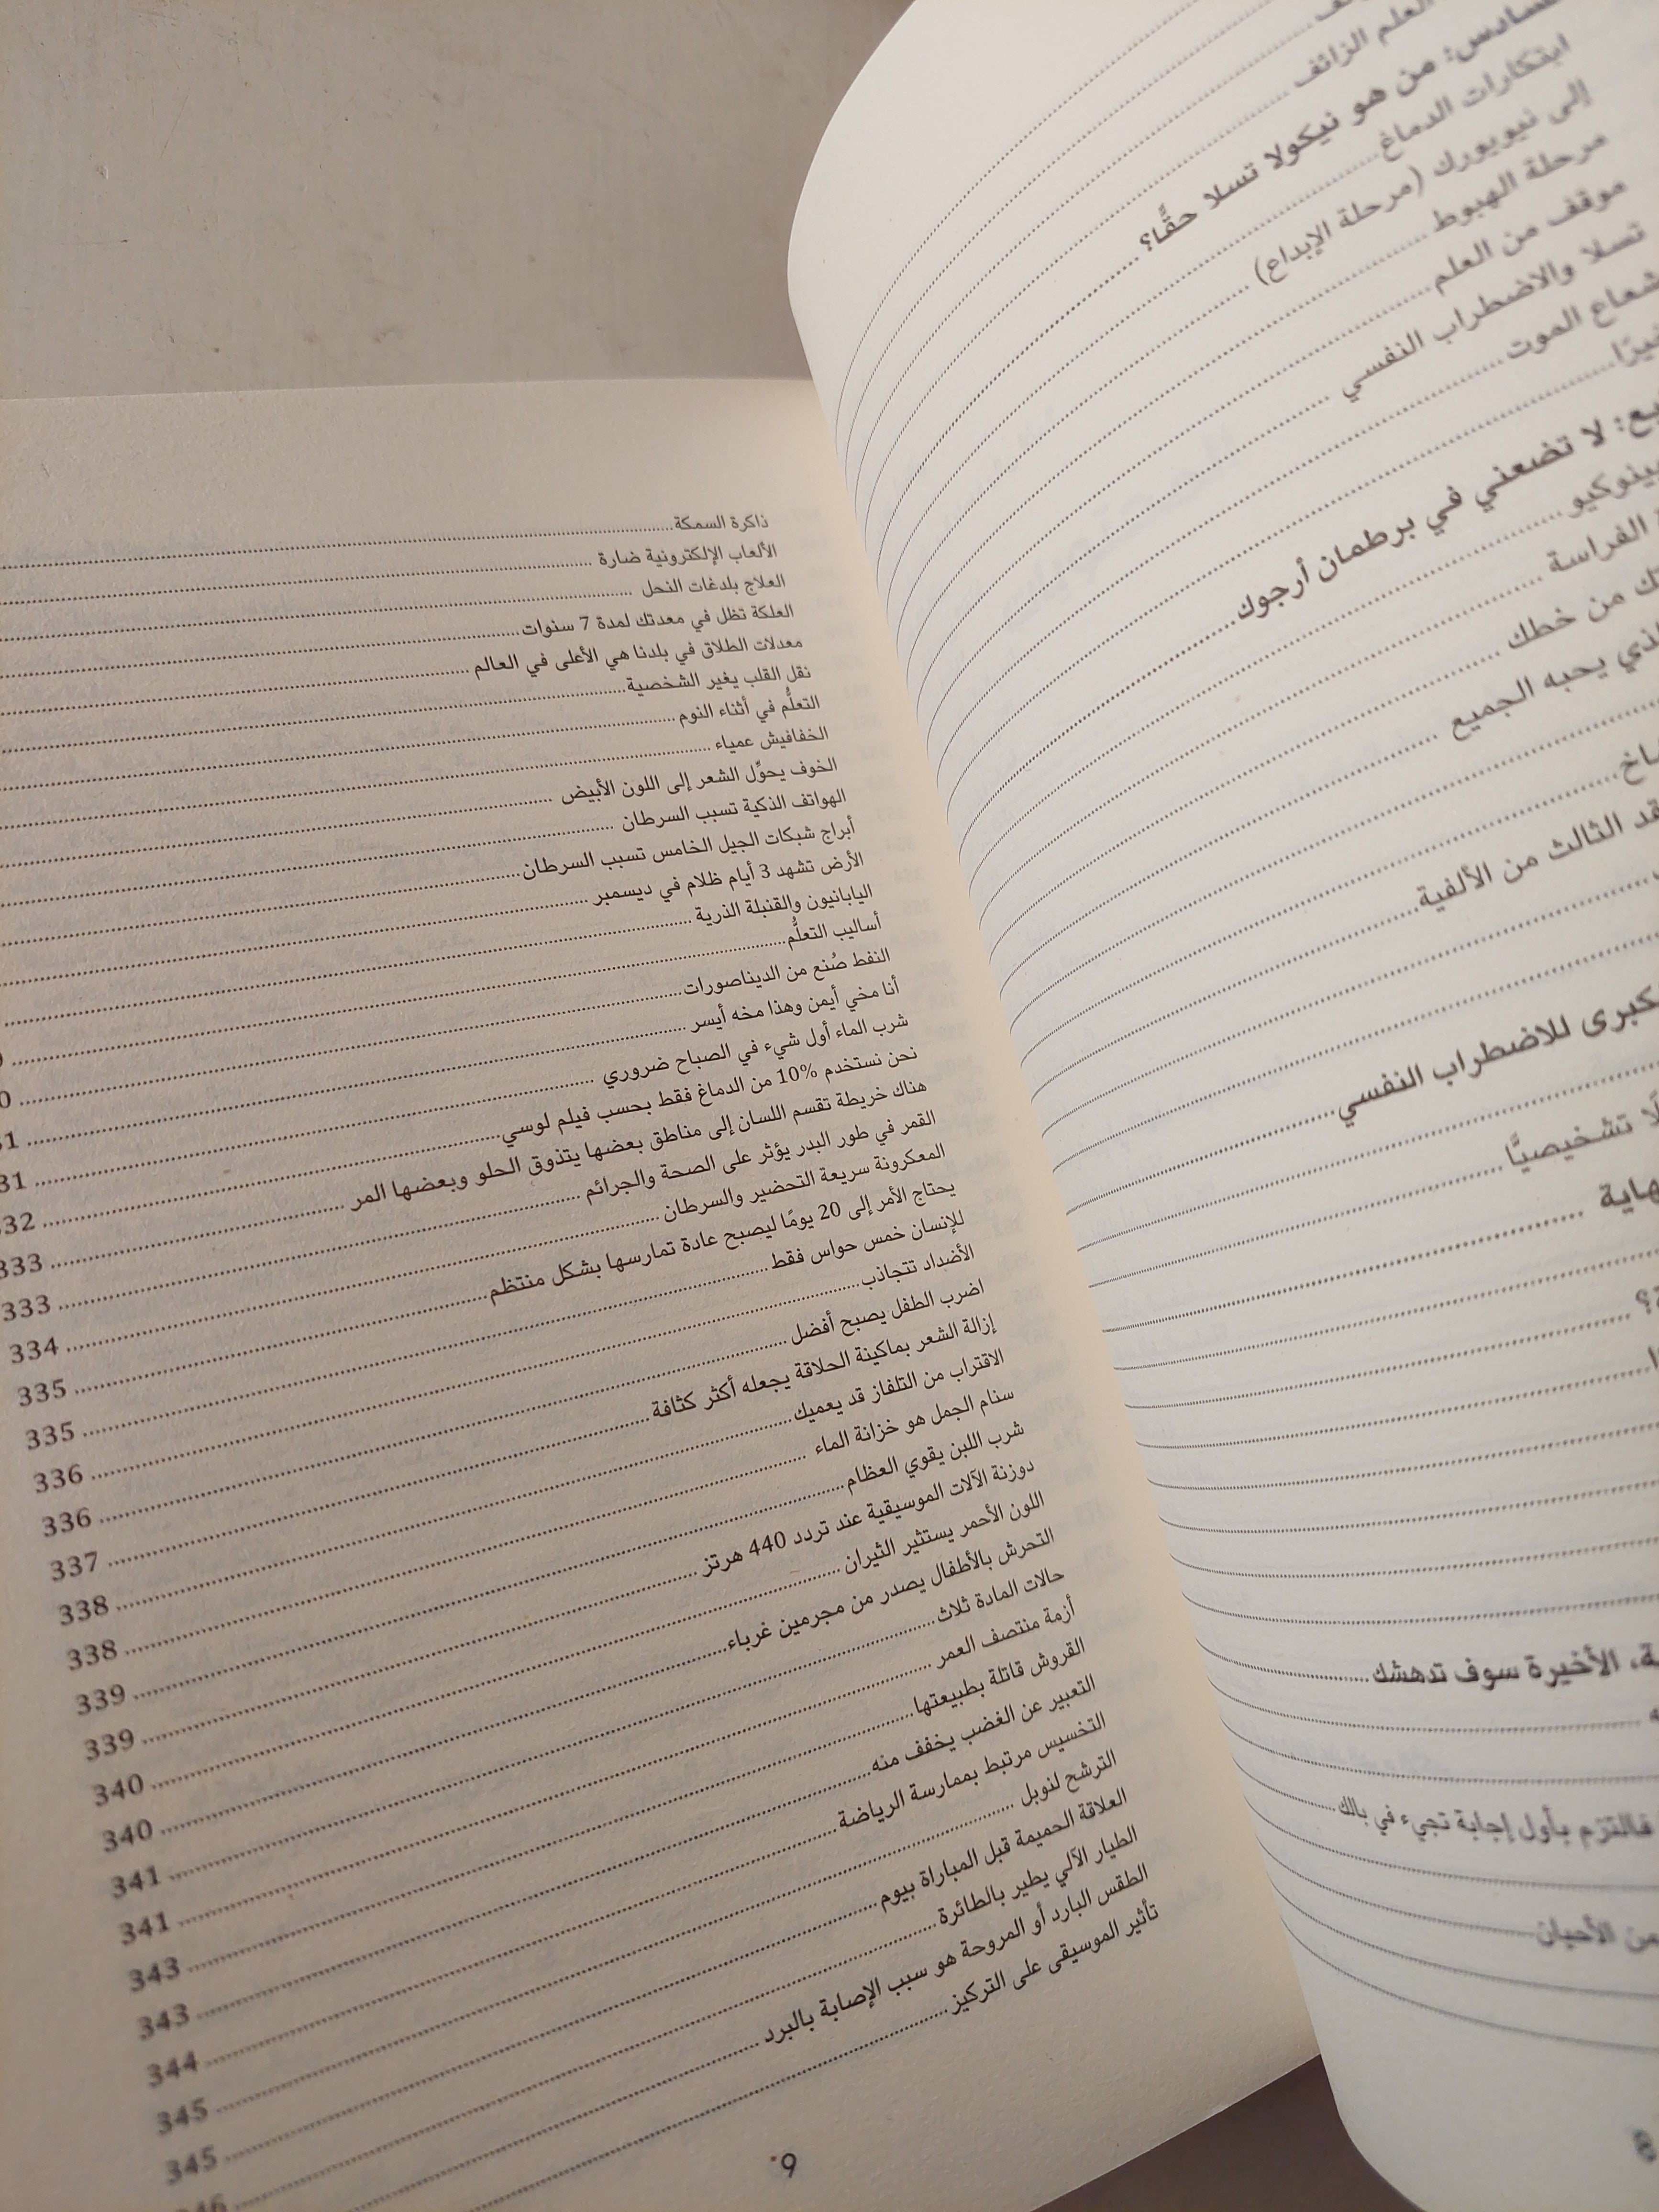 العلم الزائف
من هو نيكولا تسلا حقًّا؟
ابتكارات الدماغ
إلى نيويورك (مرحلة الإبداع)
مرحلة الهبوط
موقف من العلم
تسلا والاضطراب النفسي
شعاع الموت
لا تضعني في برطمان أرجوك
الفراسة
من خطك
يحبه الجميع
الثالث من الألفية
للاضطراب النفسي
تشخيصيًّا
الأخيرة سوف تدهشك
فالتزم بأول إجابة تجيء في بالك
من الأحيان
8
ذاكرة السمكة
الألعاب الإلكترونية ضارة
العلاج بلدغات النحل
العلكة تظل في معدتك لمدة 7 سنوات
معدلات الطلاق في بلدنا هي الأعلى في العالم
نقل القلب يغير الشخصية
التعلُّم في أثناء النوم
الخفافيش عمياء
الخوف يحوِّل الشعر إلى اللون الأبيض
الهواتف الذكية تسبب السرطان
أبراج شبكات الجيل الخامس تسبب السرطان
الأرض تشهد 3 أيام ظلام في ديسمبر
اليابانيون والقنبلة الذرية
أساليب التعلُّم
النفط صُنع من الديناصورات
أنا مخي أيمن وهذا مخه أيسر
شرب الماء أول شيء في الصباح ضروري
نحن نستخدم 10% من الدماغ فقط بحسب فيلم لوسي
هناك خريطة تقسم اللسان إلى مناطق بعضها يتذوق الحلو وبعضها المر
القمر في طور البدر يؤثر على الصحة والجرائم
المعكرونة سريعة التحضير والسرطان
يحتاج الأمر إلى 20 يومًا ليصبح عادة تمارسها بشكل منتظم
للإنسان خمس حواس فقط
الأضداد تتجاذب
اضرب الطفل يصبح أفضل
إزالة الشعر بماكينة الحلاقة يجعله أكثر كثافة
الاقتراب من التلفاز قد يعميك
سنام الجمل هو خزانة الماء
شرب اللبن يقوي العظام
دوزنة الآلات الموسيقية عند تردد 440 هرتز
اللون الأحمر يستثير الثيران
التحرش بالأطفال يصدر من مجرمين غرباء
حالات المادة ثلاث
أزمة منتصف العمر
القروش قاتلة بطبيعتها
التعبير عن الغضب يخفف منه
التخسيس مرتبط بممارسة الرياضة
الترشح لنوبل
العلاقة الحميمة قبل المباراة بيوم
الطيار الآلي يطير بالطائرة
الطقس البارد أو المروحة هو سبب الإصابة بالبرد
تأثير الموسيقى على التركيز
333
333
334
335
335
336
336
337
338
338
339
339
340
340
341
341
343
343
344
345
345
9